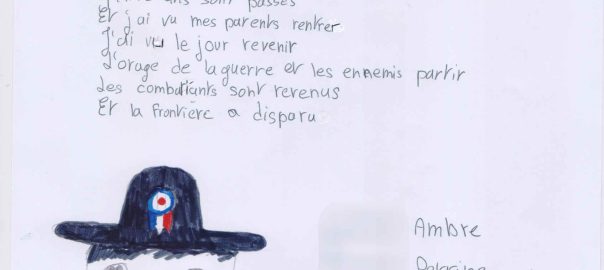 ans sont passés
Et j'ai vu mes parents rentrer
J'ai vu le jour revenir
L'orage de la guerre et les ennemis partir
Les combattants sont revenus
Et la frontière a disparu
Ambre